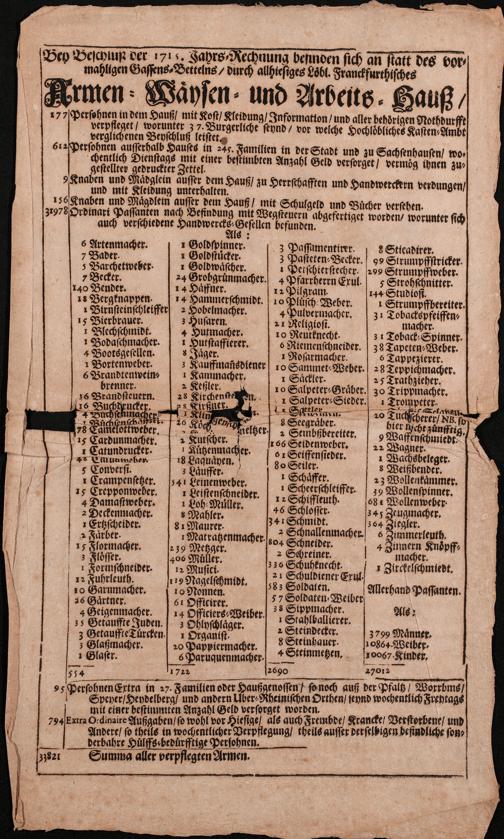 Bey Beschluß der 1715. Jahrs-Rechnung befinden sich an statt des vor-
mahligen Gassens-Bettelns / durch allhiesiges Löbl. Franckfurthisches
Armen- Wäysen- und Arbeits- Hauß /
177 Persohnen in dem Hauß / mit Kost / Kleidung / Information / und aller behörigen Nothdurfft
verpfleget / worunter 37. Burgerliche seynd / vor welche Hochlöbliches Kasten-Ambt
verglichenen Beyschluß leistet.
612 Persohnen ausserhalb Hauses in 245. Familien in der Stadt und zu Sachsenhausen / wo-
chentlich Dienstags mit einer bestimbten Anzahl Geld versorget / vermög ihnen zu-
gestellter gedruckter Zettel.
9 Knaben und Mägdlein ausser dem Hauß / zu Herrschafften und Handwerckern verdungen /
und mit Kleidung unterhalten.
156 Knaben und Mägdlein ausser dem Hauß / mit Schulgeld und Bücher versehen.
31978 Ordinari Passanten nach Befindung mit Wegsteuern abgefertiget worden / worunter sich
auch verschiedene Handwercks-Gesellen befunden.
Als:
6 Artenmacher.
7 Bader.
5 Barchetweber.
7 Becker.
140 Bender.
18 Bergknappen.
1 Birnsteinschleiffer
15 Bierbrauer.
1 Blechschmidt.
1 Bodaschmacher.
4 Bootsgesellen.
1 Bortenweber.
6 Brandtenwein-
brenner.
16 Brandsteuern.
16 Buchdrucker.
78 Camelottweber.
15 Cardunmacher.
1 Catundrucker.
5 Conversi.
1 Crampensetzer.
15 Crepponweber.
4 Damastweber.
2 Deckenmacher.
1 Ertzscheider.
2 Färber.
15 Flormacher.
3 Flösser.
1 Formschneider.
12 Fuhrleuth.
10 Garnmacher.
26 Gärtner.
4 Geigenmacher.
35 Getauffte Juden.
3 Getauffte Türcken.
3 Glaßmacher.
1 Glaser.
554
1 Goldspinner.
1 Goldstücker.
1 Goldwäscher.
24 Grobgrünmacher.
14 Häffner.
14 Hammerschmidt.
2 Hobelmacher.
3 Husaren.
4 Hutmacher.
1 Hutstaffierer.
8 Jäger.
1 Kauffmansdiener
1 Kammacher.
1 Keßler.
28
1
2 Kutscher.
1 Kützenmacher.
18 Laquayen.
3 Läuffer.
541 Leinenweber.
1 Leistenschneider.
1 Loh-Müller.
8 Mahler.
81 Maurer.
1 Matratzenmacher.
239 Metzger.
406 Müller.
12 Musici.
119 Nagelschmidt.
10 Nonnen.
61 Officirer.
14 Officirers-Weiber.
3 Ohlyschläger.
1 Organist.
20 Pappiermacher.
6 Paruquenmacher.
1722
3 Passamentirer.
3 Pasteten-Becker.
1 Petschierstecher.
4 Pfarrherrn Exul.
12 Pilgram.
10 Plüsch-Weber.
4 Pulvermacher.
21 Religiosi.
10 Reutknecht.
6 Riemenschneider.
1 Rosarmacher.
10 Sammet-Weber.
1 Säckler.
10 Salpeter-Gräber.
1 Salpeter-Sieder.
1 Sattler.
8 Seegräber.
2 Sembßbereiter.
166 Seidenweber.
61 Seiffensieder.
80 Seiler.
1 Schäffer.
1 Scheerschleiffer.
12 Schiffleuth.
46 Schlosser.
341 Schmidt.
2 Schnallenmacher.
804 Schneider.
2 Schreiner.
336 Schuknecht.
21 Schuldiener Exul.
583 Soldaten.
57 Soldaten-Weiber
38 Sippmacher.
1 Stahlballierer.
2 Steindecker.
8 Steinhauer.
4 Steinmetzen.
2690
8 Sticadirer.
99 Strumpffstricker.
299 Strumpffweber.
5 Strohschnitter.
144 Studiosi.
1 Strumpffbereiter.
31 Tobackspfeiffen-
macher.
31 Toback-Spinner.
38 Tapeten-Weber.
6 Tappezirer.
28 Teppichmacher.
25 Trathzieher.
30 Trippmacher.
1 Trompeter.
9 Waffenschmidt.
22 Wagner.
1 Wachsbeleger.
8 Weißbender.
23 Wollenkämmer.
39 Wollenspinner.
681 Wollenweber.
345 Zeugmacher.
564 Ziegler.
6 Zimmerleuth.
4 Zinnern Knöpff-
macher.
1 Zirckelschmiedt.
Allerhand Passanten.
Als:
3799 Männer.
10864 Weiber.
10067 Kinder.
27012
95 Persohnen Extra in 27. Familien oder Haußgenossen / so noch auß der Pfaltz / Worrbms /
Speyer / Heydelberg / und andern Uber-Rheinischen Orthen / seynd wochentlich Freytags
mit einer bestimbten Anzahl Geld versorget worden.
794 Extra Ordinaire Außgaben / so wohl vor Hiesige / als auch Frembde / Krancke / Verstorbene / und
Andere / so theils in wochentlicher Verpflegung / theils ausser derselbigen befindliche son-
derbahre Hülffs-bedürfftige Persohnen.
33821 Summa aller verpflegten Armen.